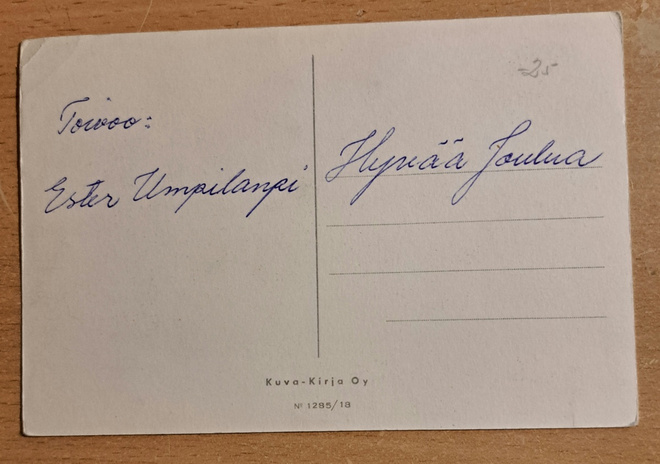 -25
Toivoo:
Ester Umpilampi
Hyvää Joulua
Kuva-Kirja Oy
Nº 1285/18